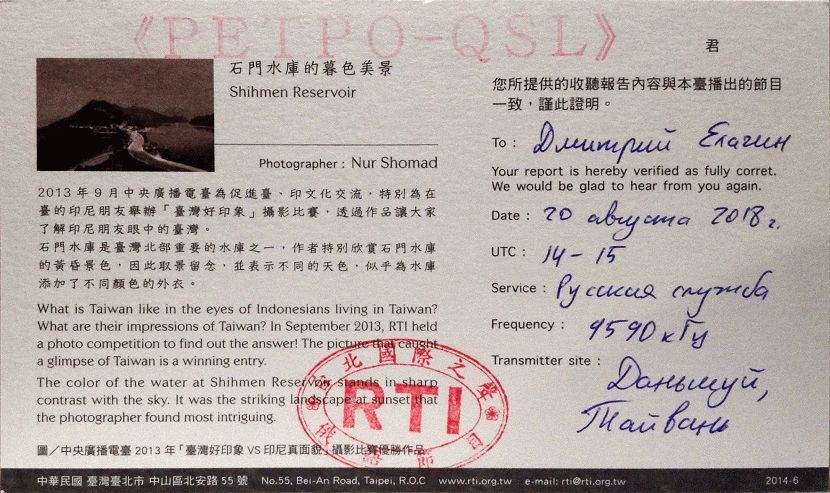 《РЕТРО-QSL》
君
石門水庫的暮色美景
Shihmen Reservoir
Photographer : Nur Shomad
2013 年 9 月中央廣播電臺為促進臺、印文化交流，特別為在
臺的印尼朋友舉辦「臺灣好印象」攝影比賽，透過作品讓大家
了解印尼朋友眼中的臺灣。
石門水庫是臺灣北部重要的水庫之一，作者特別欣賞石門水庫
的黃昏景色，因此取景留念，並表示不同的天色，似乎為水庫
添加了不同顏色的外衣。
What is Taiwan like in the eyes of Indonesians living in Taiwan?
What are their impressions of Taiwan? In September 2013, RTI held
a photo competition to find out the answer! The picture that caught
a glimpse of Taiwan is a winning entry.
The color of the water at Shihmen Reservoir stands in sharp
contrast with the sky. It was the striking landscape at sunset that
the photographer found most intriguing.
圖／中央廣播電臺 2013 年「臺灣好印象 VS 印尼真面貌」攝影比賽優勝作品
您所提供的收聽報告內容與本臺播出的節目
一致，謹此證明。
To : Дмитрий Елагин
Your report is hereby verified as fully corret.
We would be glad to hear from you again.
Date : 20 августа 2018 г.
UTC : 14-15
Service : Русская служба
Frequency : 9590 кГц
Transmitter site : Даньшуй,
Тайвань
台北國際之聲
RTI
俄語節目
中華民國 臺灣臺北市 中山區北安路 55 號 No.55, Bei-An Road, Taipei, R.O.C www.rti.org.tw e-mail: rti@rti.org.tw 2014-6